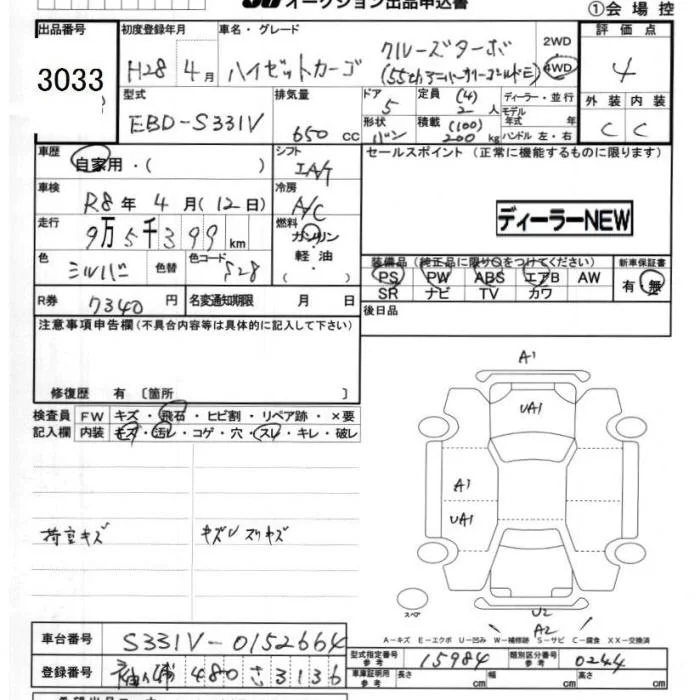 オークション出品申込書
①会場控
出品番号 3033
初度登録年月 H28年 4月
車名・グレード ハイゼットカーゴ クルーズターボ
2WD 4WD
評価点 4
外装 内装
C C
型式 EBD-S331V
排気量 650 CC
ドア 5
形状 バン
定員 (4) 2 人
積載 (100) 200 kg
ディーラー・並行
モデル年式 年
ハンドル 左・右
車歴 自家用・( )
シフト IAT
セールスポイント (正常に機能するものに限ります)
車検 R8年 4月(12日)
冷房 A/C
ディーラーNEW
走行 9万5千399km
燃料 ガソリン・軽油・( )
色 シルバー 色替 色コード S28
装備品 (純正品に限り○をつけてください)
PS PW ABS エアB AW
SR ナビ TV カワ
新車保証書 有・無
R券 7340円
名変通知期限 月 日
後日品
注意事項申告欄(不具合内容等は具体的に記入して下さい)
修復歴 有 〔箇所 〕
検査員記入欄
FW キズ・飛石・ヒビ割・リペア跡・×要
内装 キズ・汚レ・コゲ・穴・スレ・キレ・破レ
荷室キズ
キズU スリキズ
A1
UA1
A1
UA1
スペア
U2
A2
A-キズ E-エクボ U-凹み W-補修跡 S-サビ C-腐食 XX-交換済
車台番号 S331V-0152664
登録番号 480 さ 3136
型式指定番号 参考 15984
類別区分番号 参考 0244
車庫証明用 参考 長さ cm 幅 cm 高さ cm